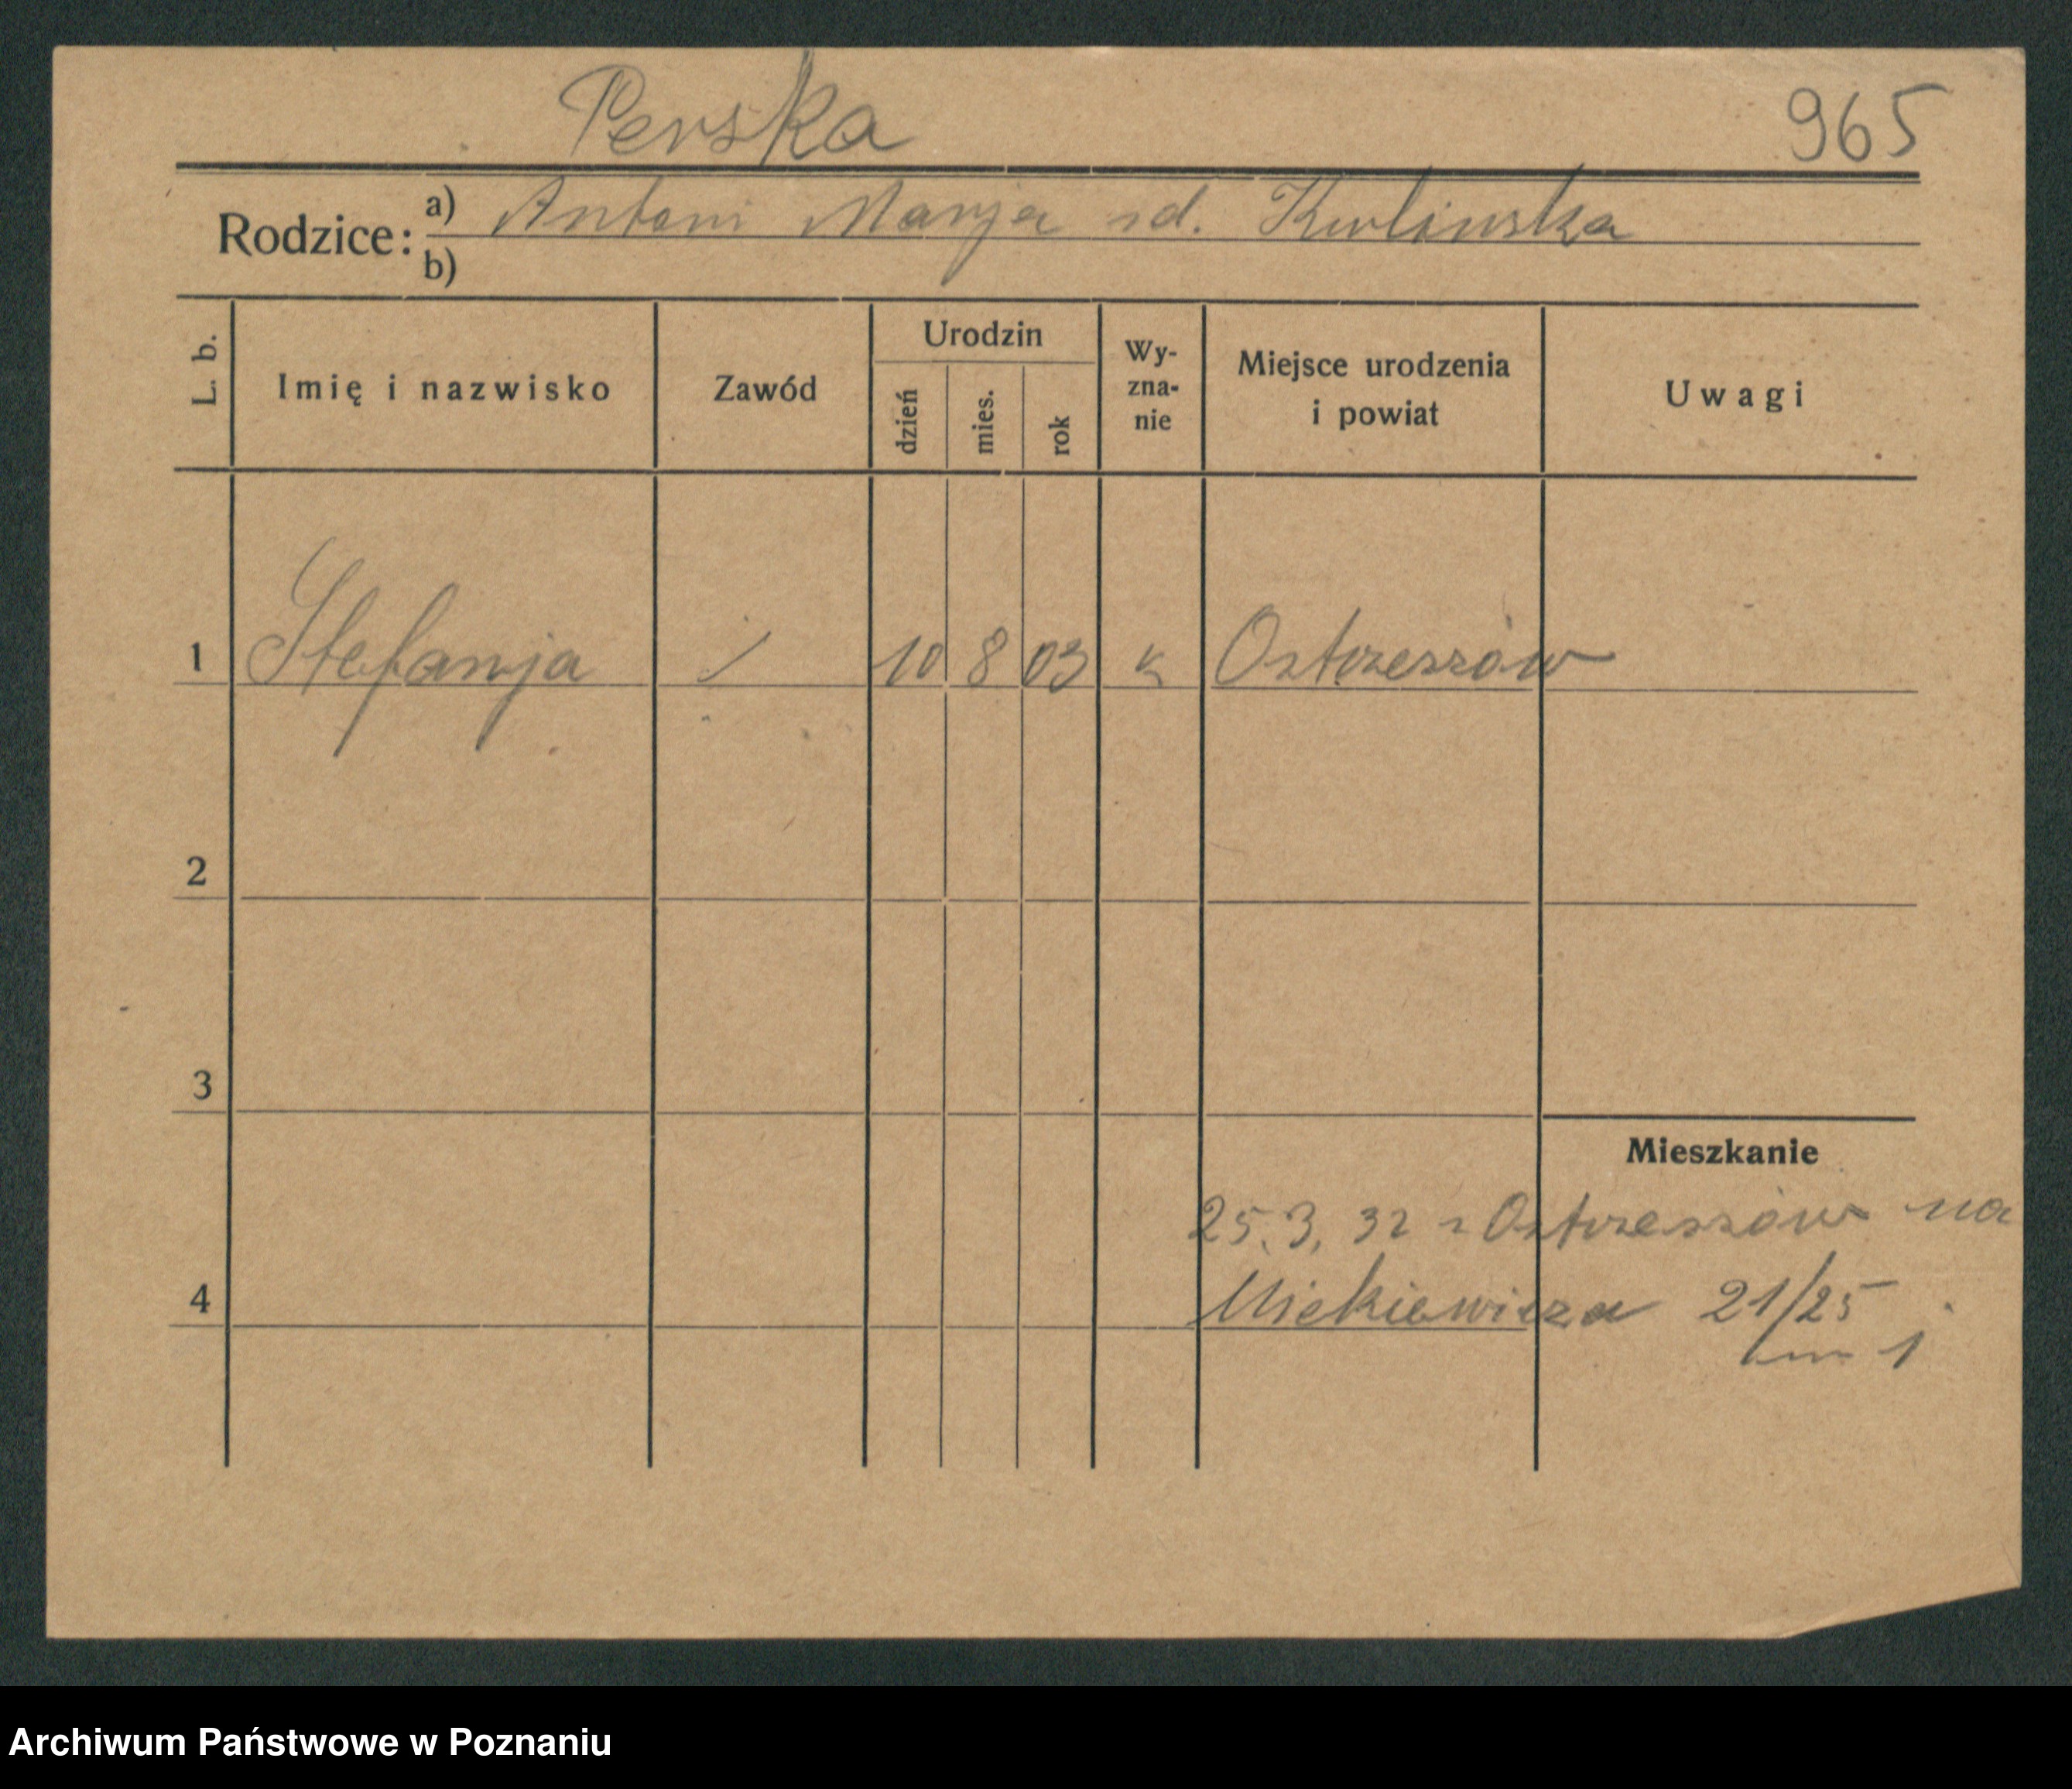 Perska 965
Rodzice: a) Antoni Marja
b)
L. b. Imię i nazwisko Zawód Urodzin dzień mies. rok Wy-zna-nie Miejsce urodzenia i powiat Uwagi
1 Stefanja / 10 8 03 k Ostrzeszów
2
3
Mieszkanie
25.3, 32 z Ostrzeszów na
4 Mickiewicza 21/25
m 1
Archiwum Państwowe w Poznaniu